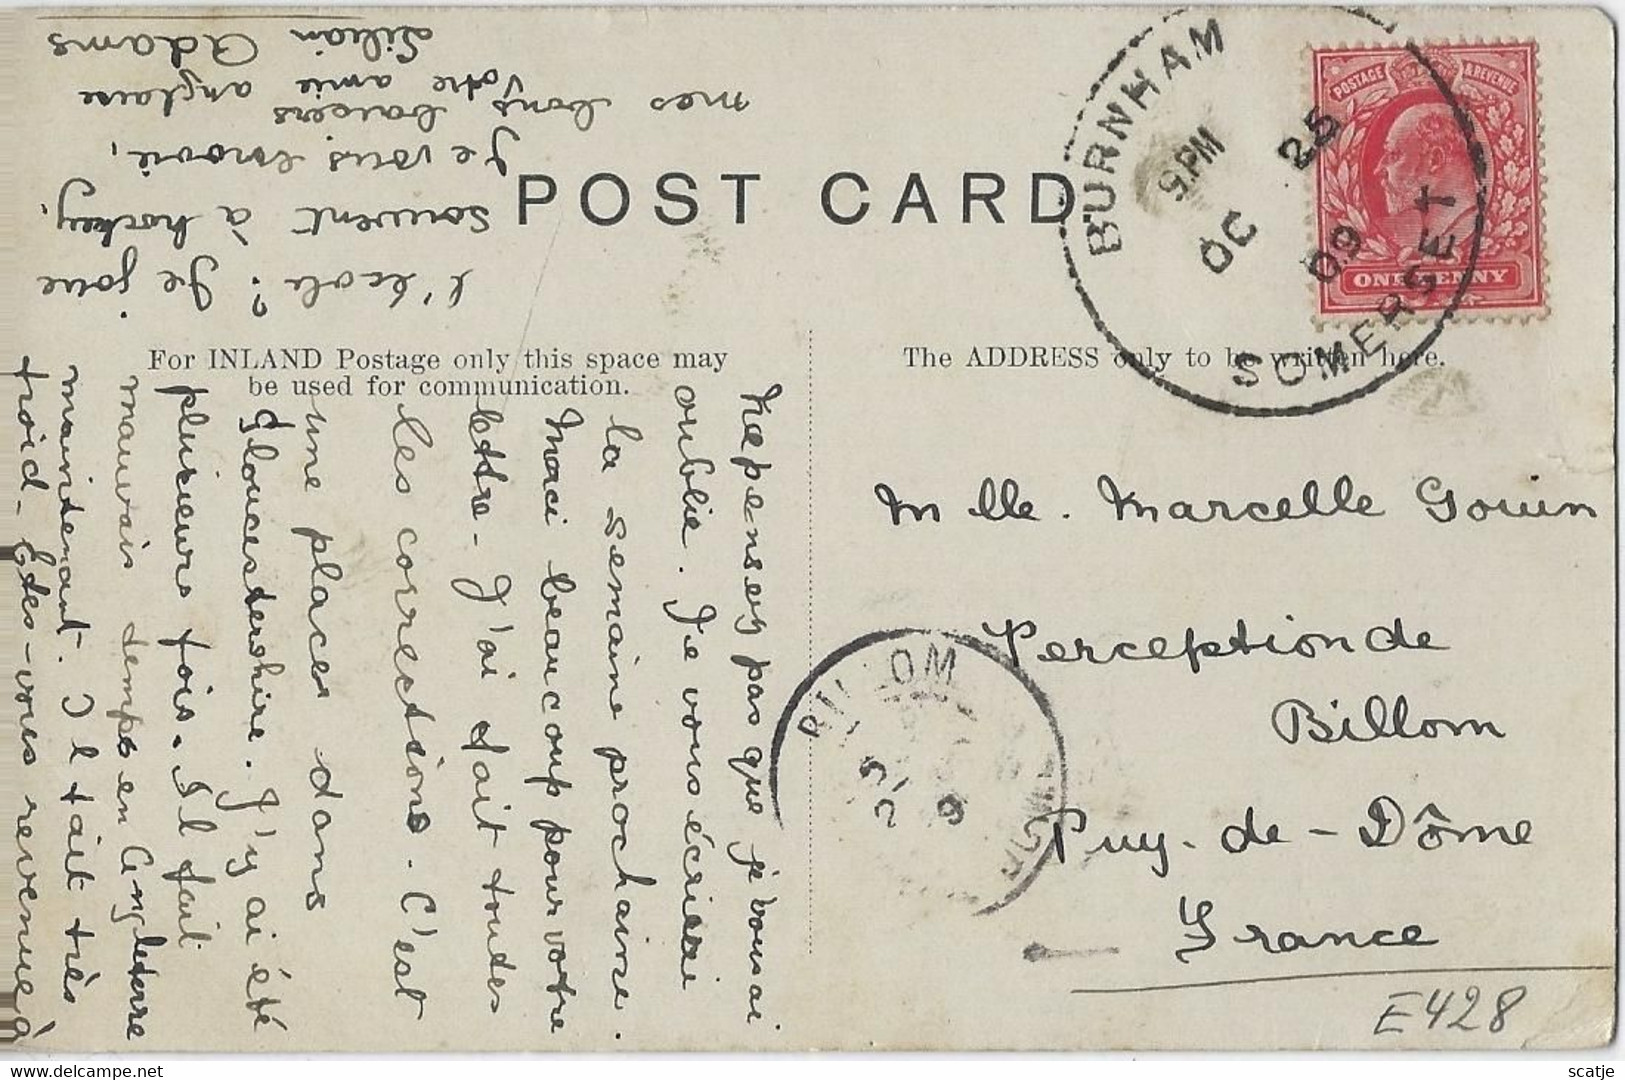 POST CARD
For INLAND Postage only this space may
be used for communication.
The ADDRESS only to be written here.
BURNHAM
9.PM
OC 25
09
SOMERSET
POSTAGE & REVENUE
ONE PENNY
Ne pensez pas que j'vous ai
oublié. Je vous écrirai
la semaine prochaine.
Merci beaucoup pour votre
lettre - J'ai fait toutes
les corrections. C'est
une place dans
Gloucestershire. J'y ai été
plusieurs fois. Il fait
mauvais temps en Angleterre
maintenant. Il fait très
froid - Etes-vous revenue à
l'école? Je joue
souvent à hockey.
Je vous envoie,
mes bons baisers
Votre amie anglaise
Lilian Adams
Mlle. Marcelle Gouin
Perception de
Billom
Puy-de-Dôme
France
BILLOM
E428
delcampe.net
scatje